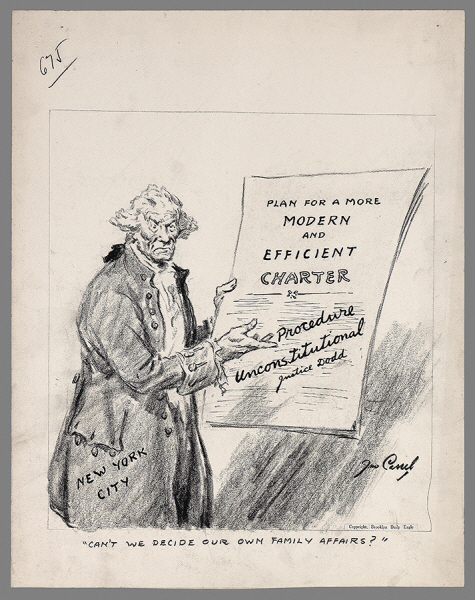 675
PLAN FOR A MORE
MODERN
AND
EFFICIENT
CHARTER
Procedure
Unconstitutional
Justice Dodd
NEW YORK
CITY
Jno Cassel
Copyright, Brooklyn Daily Eagle
"CAN'T WE DECIDE OUR OWN FAMILY AFFAIRS?"